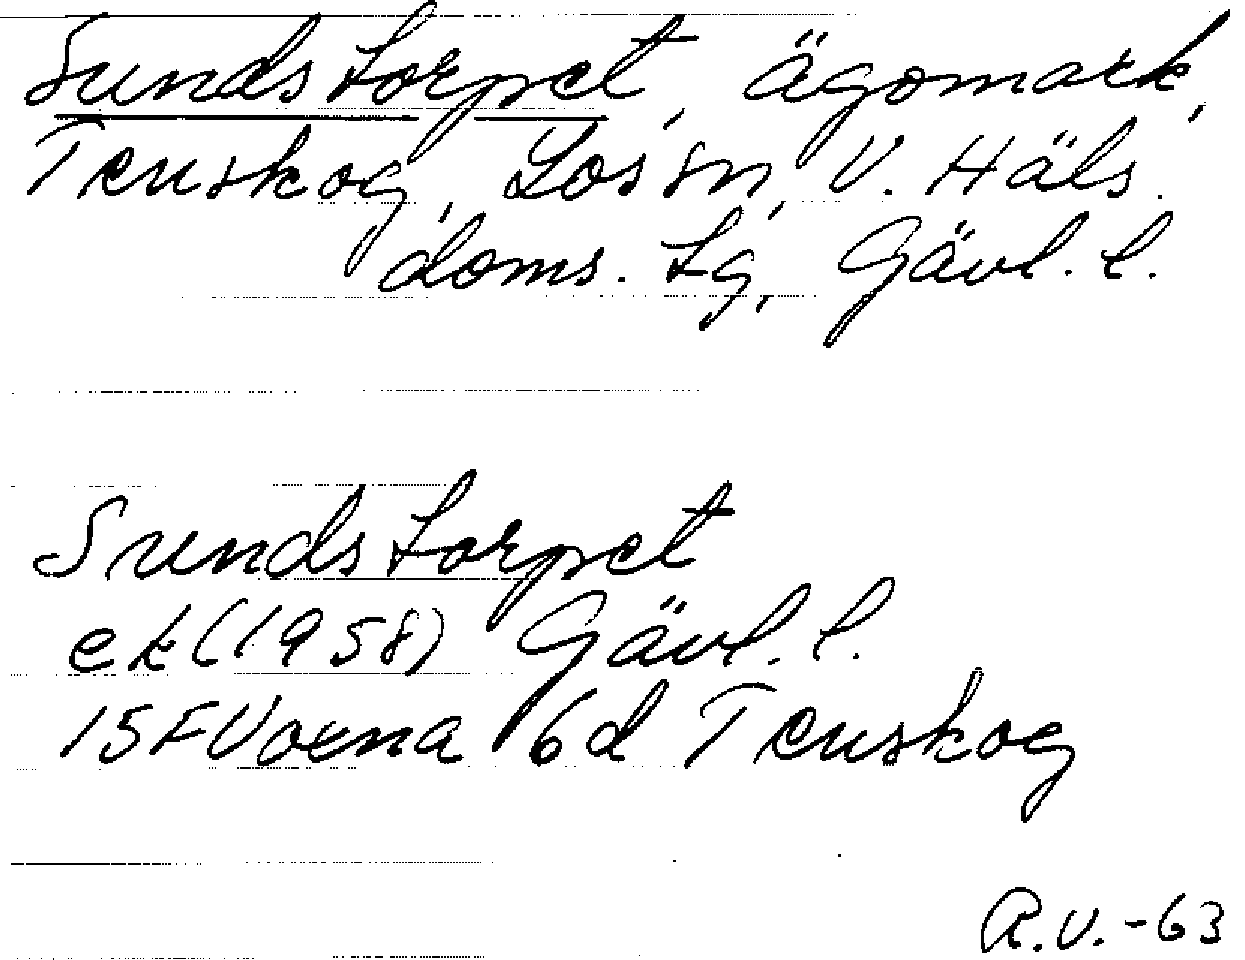 Sundstorpet, ägomark,
Tenskog, Los sn, V. Häls.
doms. tg, Gävl. l.
Sundstorpet
ek (1958) Gävl. l.
15F Voxna 6d Tenskog
R.V. -63